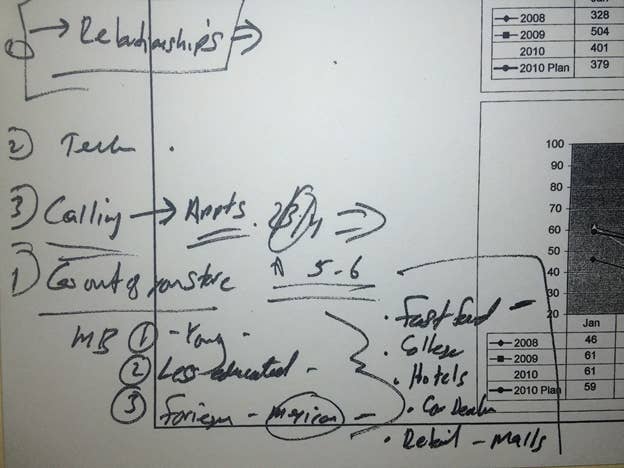 Jan
2008 328
2009 504
2010 401
2010 Plan 379
1) → Relationships ⇒
2) Tech .
3) Calling → Appts. 2/3/4 ⇒
1) Gos out of your store ↑ 5-6
MB ① - Young -
② Less educated -
③ Foriegn - mexican -
· Fast food -
· College
· Hotels
· Car Dealer
· Retail - malls
100
90
80
70
60
50
40
30
20
Jan
2008 46
2009 61
2010 61
2010 Plan 59